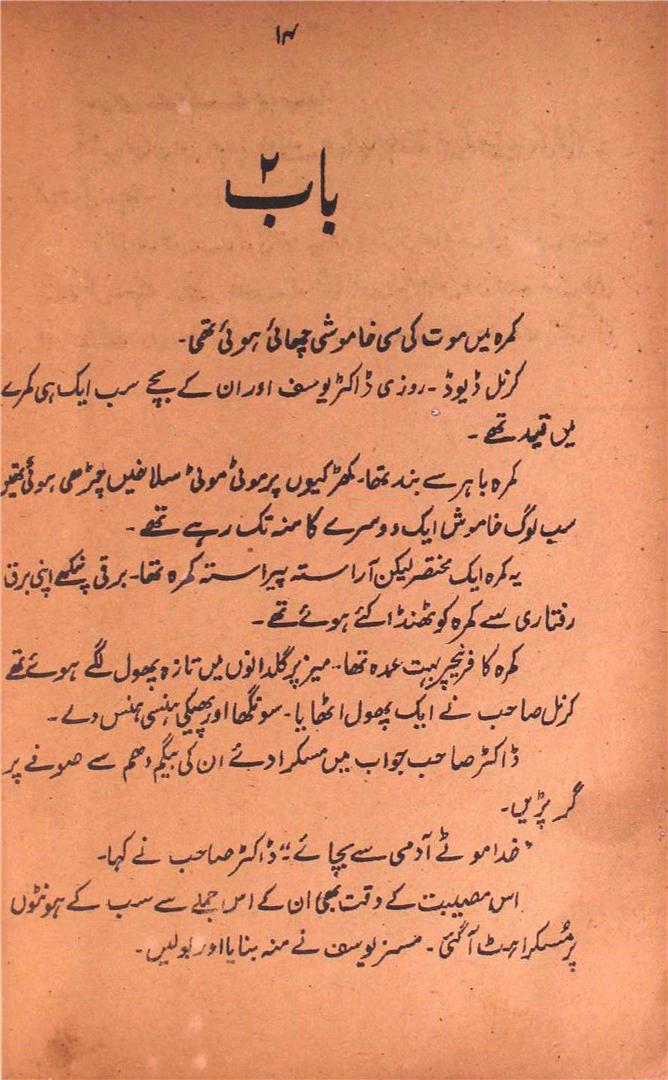 ۱۴
باب ۲
کمرہ میں موت کی سی خاموشی چھائی ہوئی تھی۔
کرنل ڈیوڈ۔ روزی ڈاکٹر یوسف اور ان کے بچے سب ایک ہی کمرے
میں قید تھے۔
کمرہ باہر سے بند تھا۔ کھڑکیوں پر موٹی موٹی سلاخیں چڑھی ہوئی تھیں
سب لوگ خاموش ایک دوسرے کا منہ تک رہے تھے۔
یہ کمرہ ایک مختصر لیکن آراستہ پیراستہ کمرہ تھا۔ برقی پنکھے اپنی برق
رفتاری سے کمرہ کو ٹھنڈا کئے ہوئے تھے۔
کمرہ کا فرنیچر بہت عمدہ تھا۔ میز پر گلدانوں میں تازہ پھول لگے ہوئے تھے
کرنل صاحب نے ایک پھول اٹھایا۔ سونگھا اور پھیکی ہنسی ہنس دیے۔
ڈاکٹر صاحب جواب میں مسکرا دئے ان کی بیگم دھم سے صوفے پر
گر پڑیں۔
"خدا موٹے آدمی سے بچائے" ڈاکٹر صاحب نے کہا۔
اس مصیبت کے وقت بھی ان کے اس جملے سے سب کے ہونٹوں
پر مُسکراہٹ آ گئی۔ مسز یوسف نے منہ بنایا اور بولیں۔